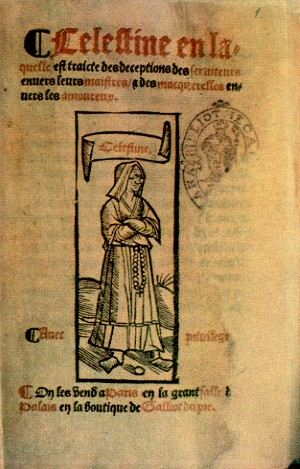 Celestine en la-
quelle est traicte des deceptions des seruiteurs
enuers leurs maistres / & des macquerelles en-
uers les amoureux.
Celestine.
Auec priuilege
On les vend a Paris en la grant salle d
Palais en la boutique de Galliot du pre.